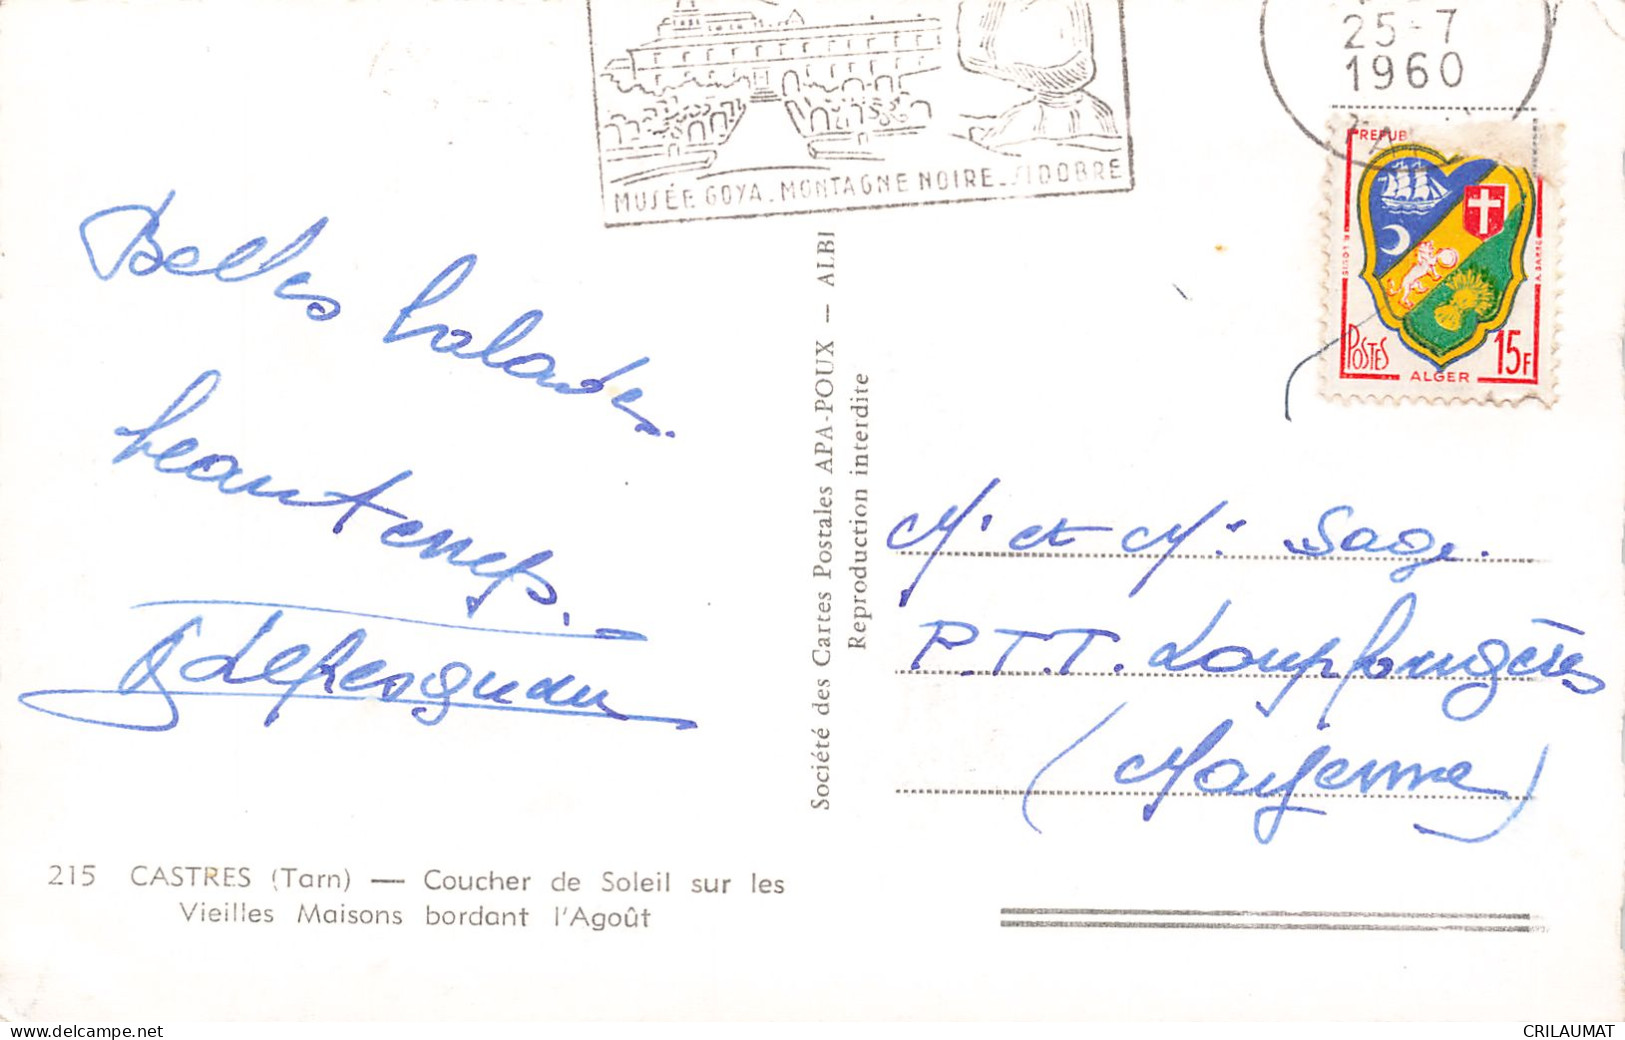 MUSÉE GOYA. MONTAGNE NOIRE. SIDOBRE
25-7
1960
REPUB
POSTES
15F
ALGER
Belles balades
beau temps.
Société des Cartes Postales APA-POUX — ALBI
Reproduction interdite
Mr et Mme Sage.
P.T.T. Loupfougères
(Mayenne)
215 CASTRES (Tarn) — Coucher de Soleil sur les
Vieilles Maisons bordant l'Agoût
www.delcampe.net
CRILAUMAT